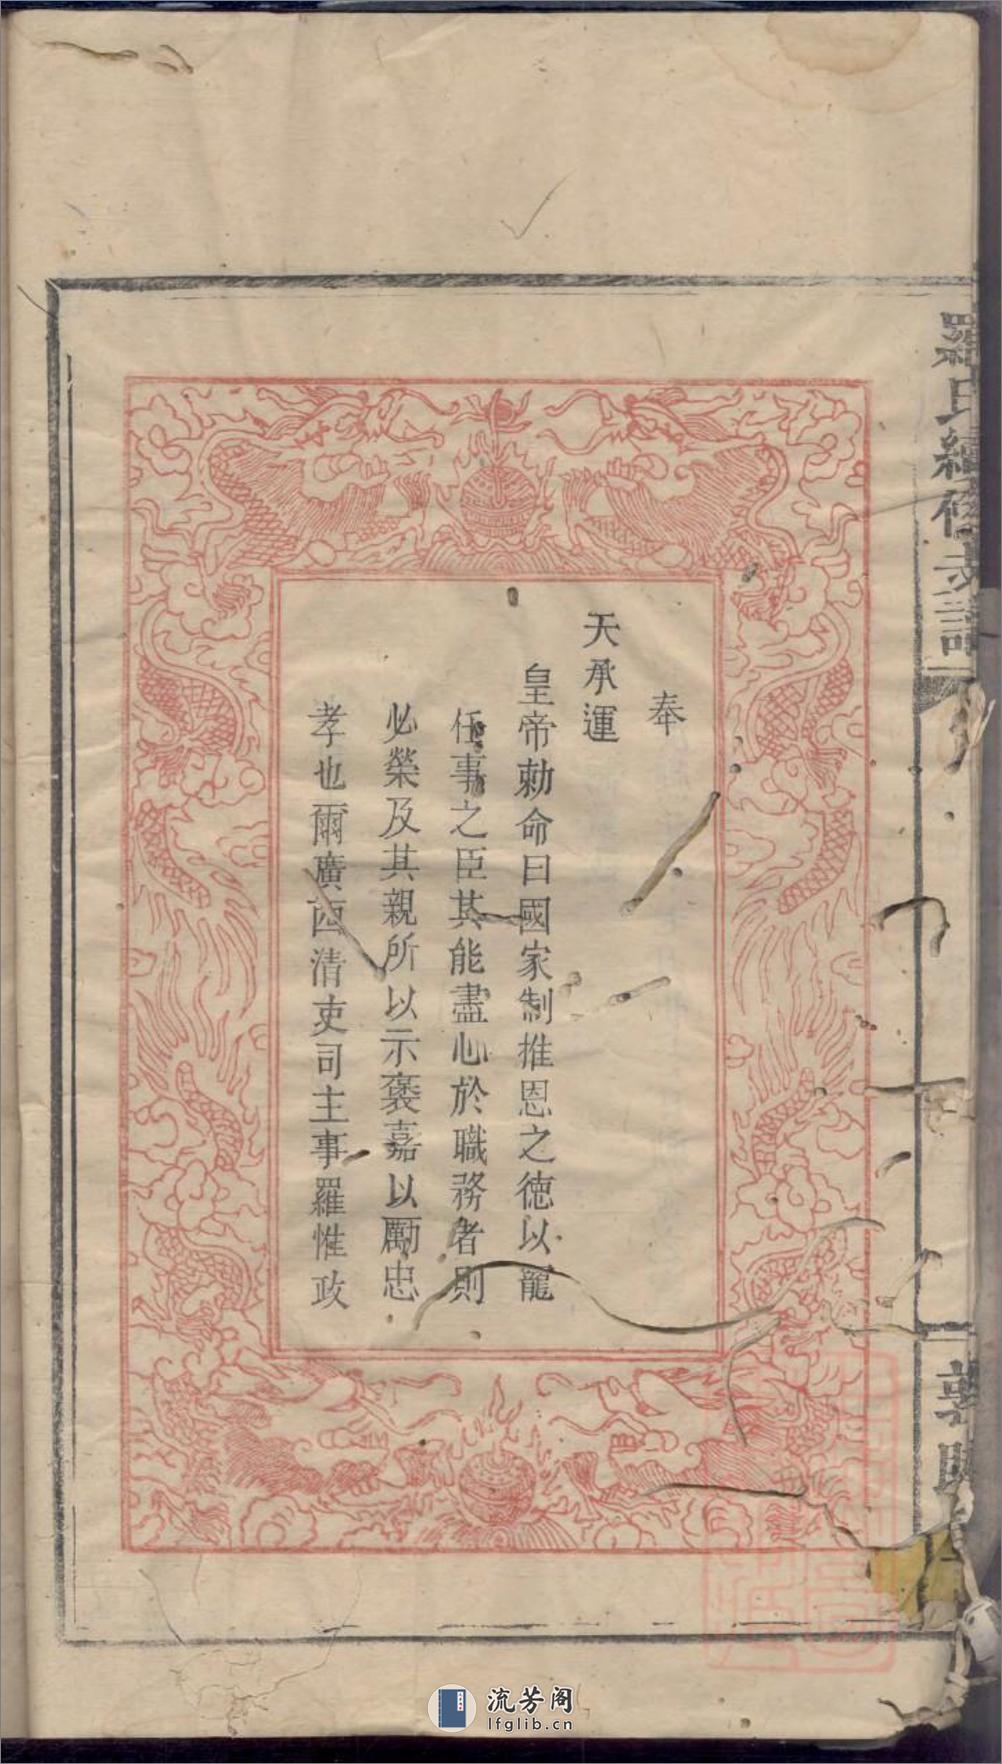 奉
天承運
皇帝勅命曰國家制推恩之徳以寵
任事之臣其能盡心於職務者則
必榮及其親所以示褒嘉以勵忠
孝也爾廣西清吏司主事羅惟政
羅氏續修支譜
流芳阁
lfglib.cn